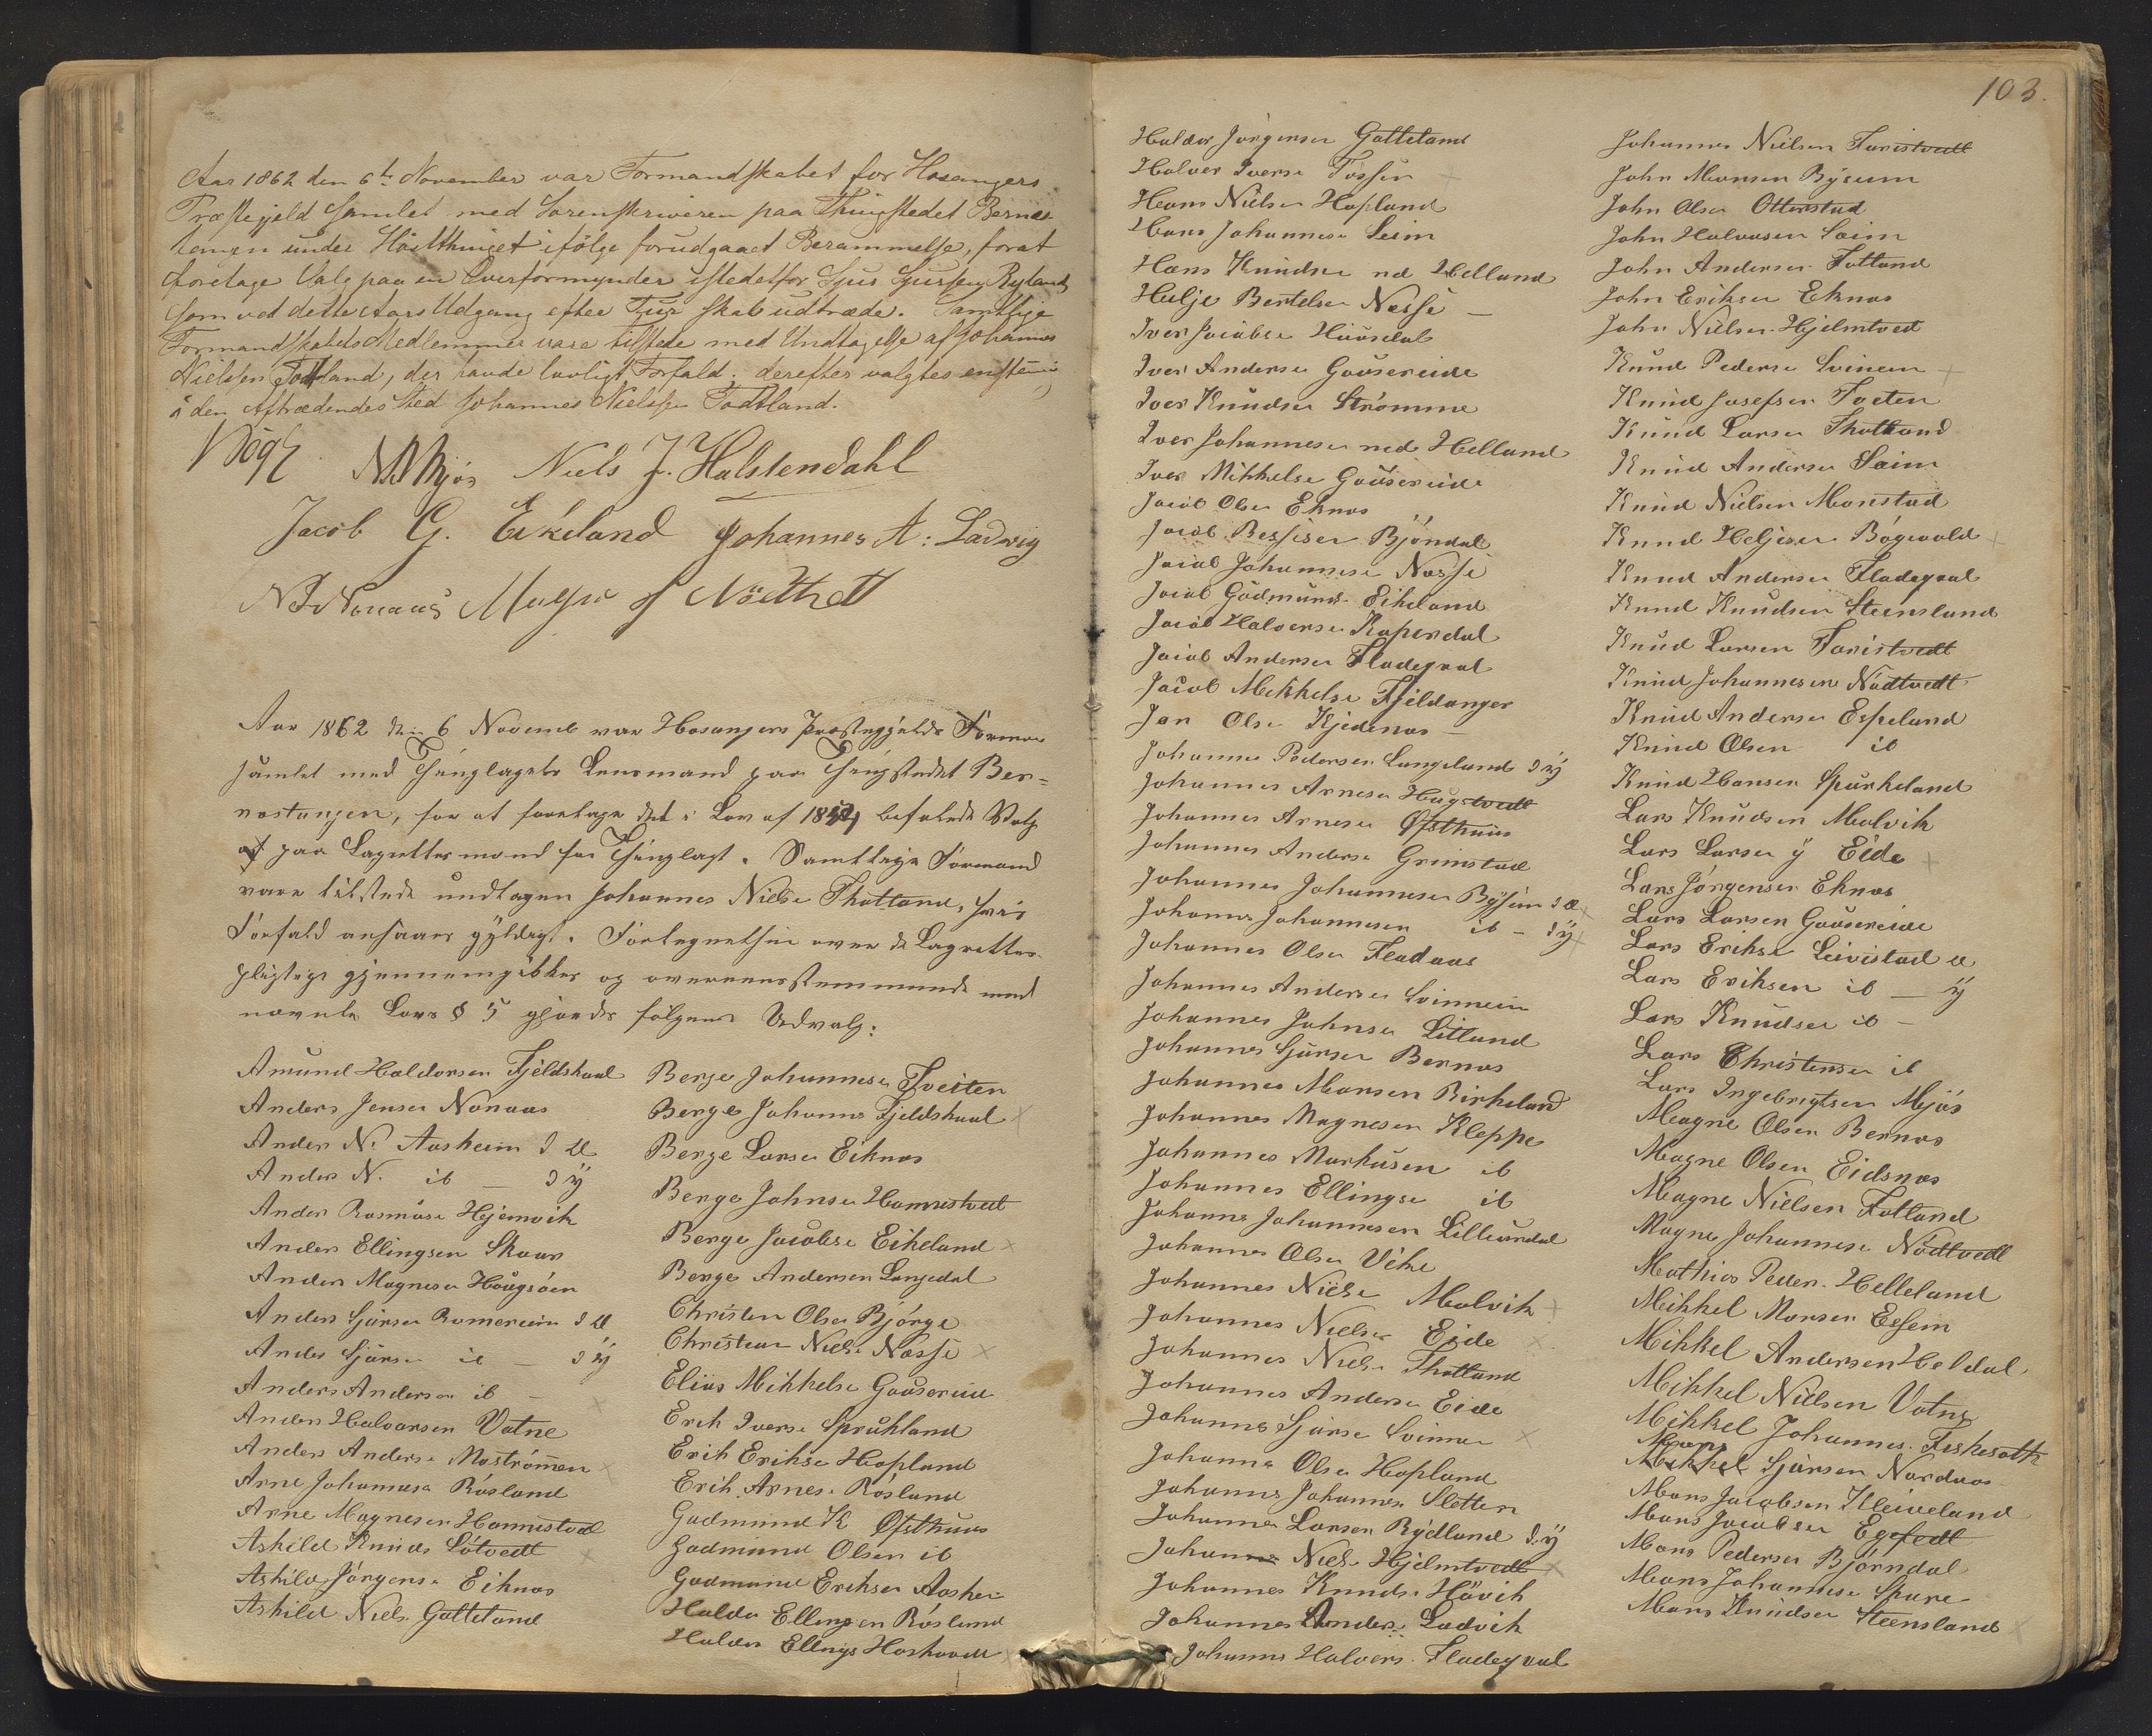 Aar 1862 den 6te November var Formandskabet for Hosangers
Præstegjeld samlet med Sorenskriveren paa Thingstedet Bernæs
tangen under Høstthinget ifölge forudgaaet Berammelse, forat
foretage Valg paa en Overformynder istedetfor Sjur Sjursen Ryland
som ved dette Aars Udgang efter Tur skal udtræde. Samtlige
Formandskabets Medlemmer vare tilstede med Undtagelse af Johannes
Nielsen Todtland, der havde lovligt Forfald. derefter valgtes
i den Aftrædendes Sted Johannes Nielsen Todtland.
Niels J. Halstendahl
Jacob G. Eikeland Johannes A: Ladvig
Nonaas
Aar 1862 den 6 Novemb var Hosangers Præstegjelds Forman
samlet med Thinglagets Lensmand paa Thingstedet Ber-
nestangen, for at foretage det i Lov af 1854 befalede Valg
af paa Lagrettesmænd for Thinglagt. Samtlige Formænd
vare tilstede undtagen Johannes Nielse Thotland, hvis
Forfald ansaaes gyldigt. Fortegnelsen over de Lagrettes
pligtige gjennemgikkes og overeensstemmende med
nævnte Lovs § 5 gjordes følgende Udvalg:
Amund Haldorsen Fjeldskaal
Anders Jensen Nonaas
Anders N. Aasheim d æ
Anders N. ib — d ÿ
Anders Rasmuse Hjemvik
Anders Ellingsen Skaar
Anders Magnesen Haugsöen
Anders Sjursen Romereim d æ
Anders Sjurse ib — d ÿ
Anders Andersen ib —
Anders Halvorsen Vatne
Anders Anderse Moströmmen
Arne Johannese Rösland
Arne Magnesen Hannestvedt
Askild Knuds Lötvedt
Askild Jörgense Eiknes
Askild Niels Gatteland
Berge Johannese Tveiten
Berge Johannes Fjeldskaal
Berge Larse Eiknes
Berge Johnse Hannestvedt
Berge Jacobse Eikeland
Berge Andersen Langedal
Christen Olse Bjørge
Christian Niels Næsse
Elias Mikkelse Gausereide
Erik Iverse Sprukland
Erik Erikse Hopland
Erik Arnese Rösland
Gudmund K Ofsthuus
Gudmund Olsen ib
Gudmund Eriksen Aashei
Haldo Ellingsen Rösland
Haldor Ellings
103.
Haldor Jörgensen Gatteland
Halver Iverse Fossen
Hans Nielsen Hopland
Hans Johannese Seim
Hans Knudse nd Helland
Helje Bertelsen Næsse —
Iver Jacobse Hausdal
Iver Anderse Gausereide
Iver Knudsen Strömme
Iver Johannese ned Helland
Iver Mikkelse Gausereide
Jacob Olsen Eknæs
Jacob Bessesen Bjöndal
Jacob Johannese Næsse
Jacob Gudmunds Eikeland
Jacob Halverse Kaperdal
Jacob Andersen Fladegaal
Jacob Mikkelse Fjeldanger
Jan Olse Kjedenæs —
Johannes Pedersen Langeland d ÿ
Johannes Arnese Hugstvedt
Johannes Arnese Ofsthuus
Johannes Anderse Grimstad
Johannes Johannesen Bysein d æ
Johannes Johannesen ib — d ÿ
Johannes Olsen Fladaas
Johannes Anderse Svinnem
Johannes Johnse Litland
Johannes Sjursen Bernes
Johannes Monsen Birkeland
Johannes Magnesen Kleppe
Johannes Markusen ib
Johannes Ellingse ib
Johannes Johannesen Lilleurdal
Johannes Olse Vike
Johannes Nielse Molvik
Johannes Nielse Eide
Johannes Niels Thotland
Johannes Anderse Eide
Johannes Sjurse Svinne
Johannes Olse Hopland
Johannes Johannes Sletten
Johannes Larsen Rydland d. ÿ
Johannes Niels Hjelmtvedt
Johannes Knuds Hövik
Johannes Anders Ladvik
Johannes Halvers Fladegaal
Johannes Nielsen Faristvedt
John Monsen Bysem
John Olse Otterstad
John Halvorsen Seim
John Andersen Fotland
John Eriksen Eknæs
John Nielsen Hjelmtved
Knud Pederse Svinem
Knud Josefsen Tveten
Knud Larse Thotland
Knud Anderse Seim
Knud Nielsen Monstad
Knud Heljesen Bögevold
Knud Anderse Fladegaal
Knud Knudsen Steensland
Knud Larsen Faristvedt
Knud Johannesen Nödtvedt
Knud Anderse Espeland
Knud Olsen ib
Knud Hansen Spurkeland
Lars Knudsen Molvik
Lars Larsen ÿ Eide
Lars Jørgensen Eknæs
Lars Larsen Gausereide
Lars Erikse Leivestad æ
Lars Eriksen ib — ÿ
Lars Knudsen ib —
Lars Christensen ib
Lars Ingebrigtsen Mjös
Magne Olsen Bernes
Magne Olsen Eidsnæs
Magne Nielsen Fotland
Magne Johannese Nödtvedt
Mathias Peder. Helleland
Mikkel Monsen Eesem
Mikkel Andersen Heldal
Mikkel Nielsen Vatne
Mikkel Johannes. Feskesæth
Mons
Mikkel Sjursen Nordaas
Mons Jacobsen Kleiveland
Mons Jacobsen Egefedt
Mons Pederse Bjørndal
Mons Johannese Spure
Mons Knudsen Steensland